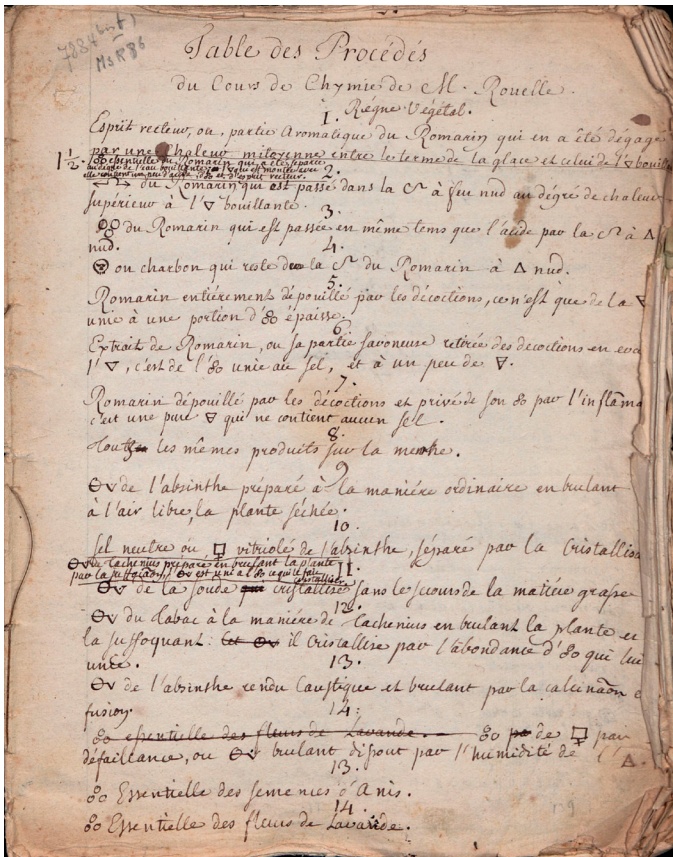 7884 bis 1
MsR86
Table des Procédés
du Cours de Chymie de M. Rouelle.
1.
Régne Végétal.
Esprit recteur, ou, partie Aromatique du Romarin qui en a été dégagé
par une Chaleur mitoyenne entre le terme de la glace et celui de l'🜃 bouill
1 1/2. 🝆 essentielle du Romarin qui a été séparée
au degré de l'eau bouillante
elle contient un peu d'acide, d'🝆 et d'esprit recteur.
2.
du Romarin qui est passé dans la à feu nud au dégré de chaleur
supérieur à l'🜄 bouillante.
3.
🝆 du Romarin qui est passée en même tems que l'acide par la à 🜂
nud.
4.
ou charbon qui reste de la du Romarin à 🜂 nud.
5.
Romarin entiérement dépouillé par les décoctions, ce n'est que de la 🜃
unie à une portion d'🝆 épaisse.
6.
Extrait de Romarin, ou sa partie savoneuse retirée des decoctions en eva
l'🜄, c'est de l'🝆 unie au sel, et à un peu de 🜃.
7.
Romarin dépouillé par les décoctions et privé de son 🝆 par l'inflāma
c'est une pure 🜃 qui ne contient aucun sel.
8.
tous les mêmes produits sur la menthe.
9
de l'absinthe préparé à la maniére ordinaire en brulant
à l'air libre, la plante séchée.
10.
sel neutre ou vitriolé de l'absinthe, séparé par la Cristallisa
de tachenius préparé en brulant la plante
par la suffocation, est uni à l'🝆 qui le fait
cristalliser
11.
de la soude cristallisé sans le secours de la matiére grasse
12.
du tabac à la maniére de Tachenius en brulant la plante en
la suffoquant: il Cristallise par l'abondance d'🝆 qui lui
unie.
13.
de l'absinthe rendu Caustique et brulant par la calcināon e
fusion.
14.
🝆 essentielle des fleurs de Lavande. 🝆 de par
défaillance, ou brulant dissout par l'humidité de l'🜁.
13.
🝆 Essentielle des semences d'Anis.
14.
🝆 Essentielle des fleurs de Lavande.